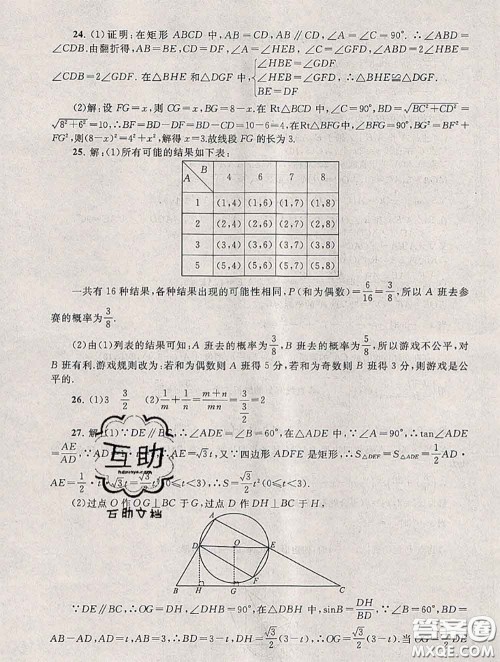 24. (1)证明:在矩形 ABCD 中,AB=CD,AB∥CD,∠A=∠C=90°.∴∠ABD=
∠CDB.由翻折得,AB=BE,CD=DF,∠A=∠HEB,∠C=∠GFD,∠ABD=2∠HBE=
∠CDB=2∠GDF.在△BHE和△DGF中,{∠HBE=∠GDF, ∠HEB=∠GFD, BE=DF ∴△BHE≌△DGF.
(2)解:设 FG=x,则 CG=x,BG=8-x.在 Rt△BCD 中,∠C=90°,BD=√BC²+CD²=
√8²+6²=10,∴BF=BD-DF=BD-CD=10-6=4.在Rt△BFG中,∠BFG=90°,∴BG²=BF²+
FG²,则(8-x)²=4²+x².解得x=3.故线段FG的长为3.
25. 解:(1)所有可能的结果如下表:
A B 4 6 7 8
1 (1,4) (1,6) (1,7) (1,8)
2 (2,4) (2,6) (2,7) (2,8)
3 (3,4) (3,6) (3,7) (3,8)
5 (5,4) (5,6) (5,7) (5,8)
一共有16种结果,各种结果出现的可能性相同,P(和为偶数)=6/16=3/8,所以 A 班去参
赛的概率为3/8.
(2)由(1)列表的结果可知:A班去的概率为3/8,B班去的概率为5/8,所以游戏不公平,对
B班有利.游戏规则改为:若和为偶数则A班得5分,若和为奇数则B班得3分,则游戏是公
平的.
26. (1)3 3/2 (2)1/m+1/n=m+n/mn=3/(3/2)=2
27. 解:(1)∵DE∥BC,∴∠ADE=∠B=60°,在△ADE中,∵∠A=90°,∴tan∠ADE
=AE/AD.∵AD= =√3t,又∵四边形ADFE是矩形,∴S△DEF=S△ADE=1/2AD·
AE= √3t= (0≤t<3),∴S=√3/2t²(0≤t<3).
(2)过点 O 作 OG⊥BC 于 G,过点 D 作 DH⊥BC 于 H,
A
D O E
F
B H G C
∵DE∥BC,∴OG=DH,∠DHB=90°,在△DBH中,sinB=DH/BD,∵∠B=60°,BD=
AB-AD,AD=t,AB=3,∴BD=3-t,DH=√3/2(3-t),∴OG=√3/2(3-t).当OG=
互助
互助文档
答案圈
MXQE.COM